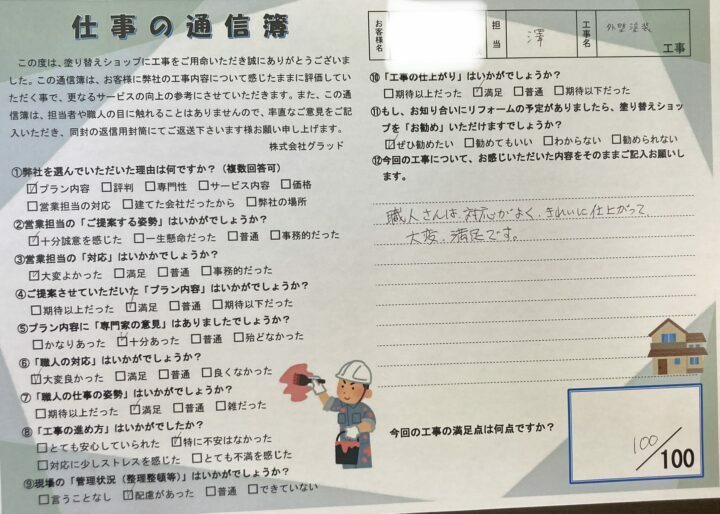 仕事の通信簿
お客様名
担当
澤
工事名
外壁塗装
工事
この度は、塗り替えショップに工事をご用命いただき誠にありがとうございま
した。この通信簿は、お客様に弊社の工事内容について感じたままに評価してい
ただく事で、更なるサービスの向上の参考にさせていただきます。また、この通
信簿は、担当者や職人の目に触れることはありませんので、率直なご意見をご記
入いただき、同封の返信用封筒にてご返送下さいます様お願い申し上げます。
株式会社グラッド
①弊社を選んでいただいた理由は何ですか?(複数回答可)
☑プラン内容 □評判 □専門性 □サービス内容 □価格
□営業担当の対応 □建てた会社だったから □弊社の場所
②営業担当の「ご提案する姿勢」はいかがでしょうか?
☑十分誠意を感じた □一生懸命だった □普通 □事務的だった
③営業担当の「対応」はいかかでしょうか?
☑大変よかった □満足 □普通 □事務的だった
④ご提案させていただいた「プラン内容」はいかがでしょうか?
□期待以上だった ☑満足 □普通 □期待以下だった
⑤プラン内容に「専門家の意見」はありましたでしょうか?
□かなりあった ☑十分あった □普通 □殆どなかった
⑥「職人の対応」はいかがでしょうか?
☑大変良かった □満足 □普通 □良くなかった
⑦「職人の仕事の姿勢」はいかがでしょうか?
□期待以上だった ☑満足 □普通 □雑だった
⑧「工事の進め方」はいかがでしたか?
□とても安心していられた ☑特に不安はなかった
□対応に少しストレスを感じた □とても不満を感じた
⑨現場の「管理状況(整理整頓等)」はいかがでしょうか?
□言うことなし ☑配慮があった □普通 □できていない
⑩「工事の仕上がり」はいかがでしょうか?
□期待以上だった ☑満足 □普通 □期待以下だった
⑪もし、お知り合いにリフォームの予定がありましたら、塗り替えショッ
プを「お勧め」いただけますでしょうか?
☑ぜひ勧めたい □勧めてもいい □わからない □勧められない
⑫今回の工事について、お感じいただいた内容をそのままご記入お願いし
ます。
職人さんは、対応がよく、きれいに仕上がって、
大変、満足です。
今回の工事の満足点は何点ですか?
100/100